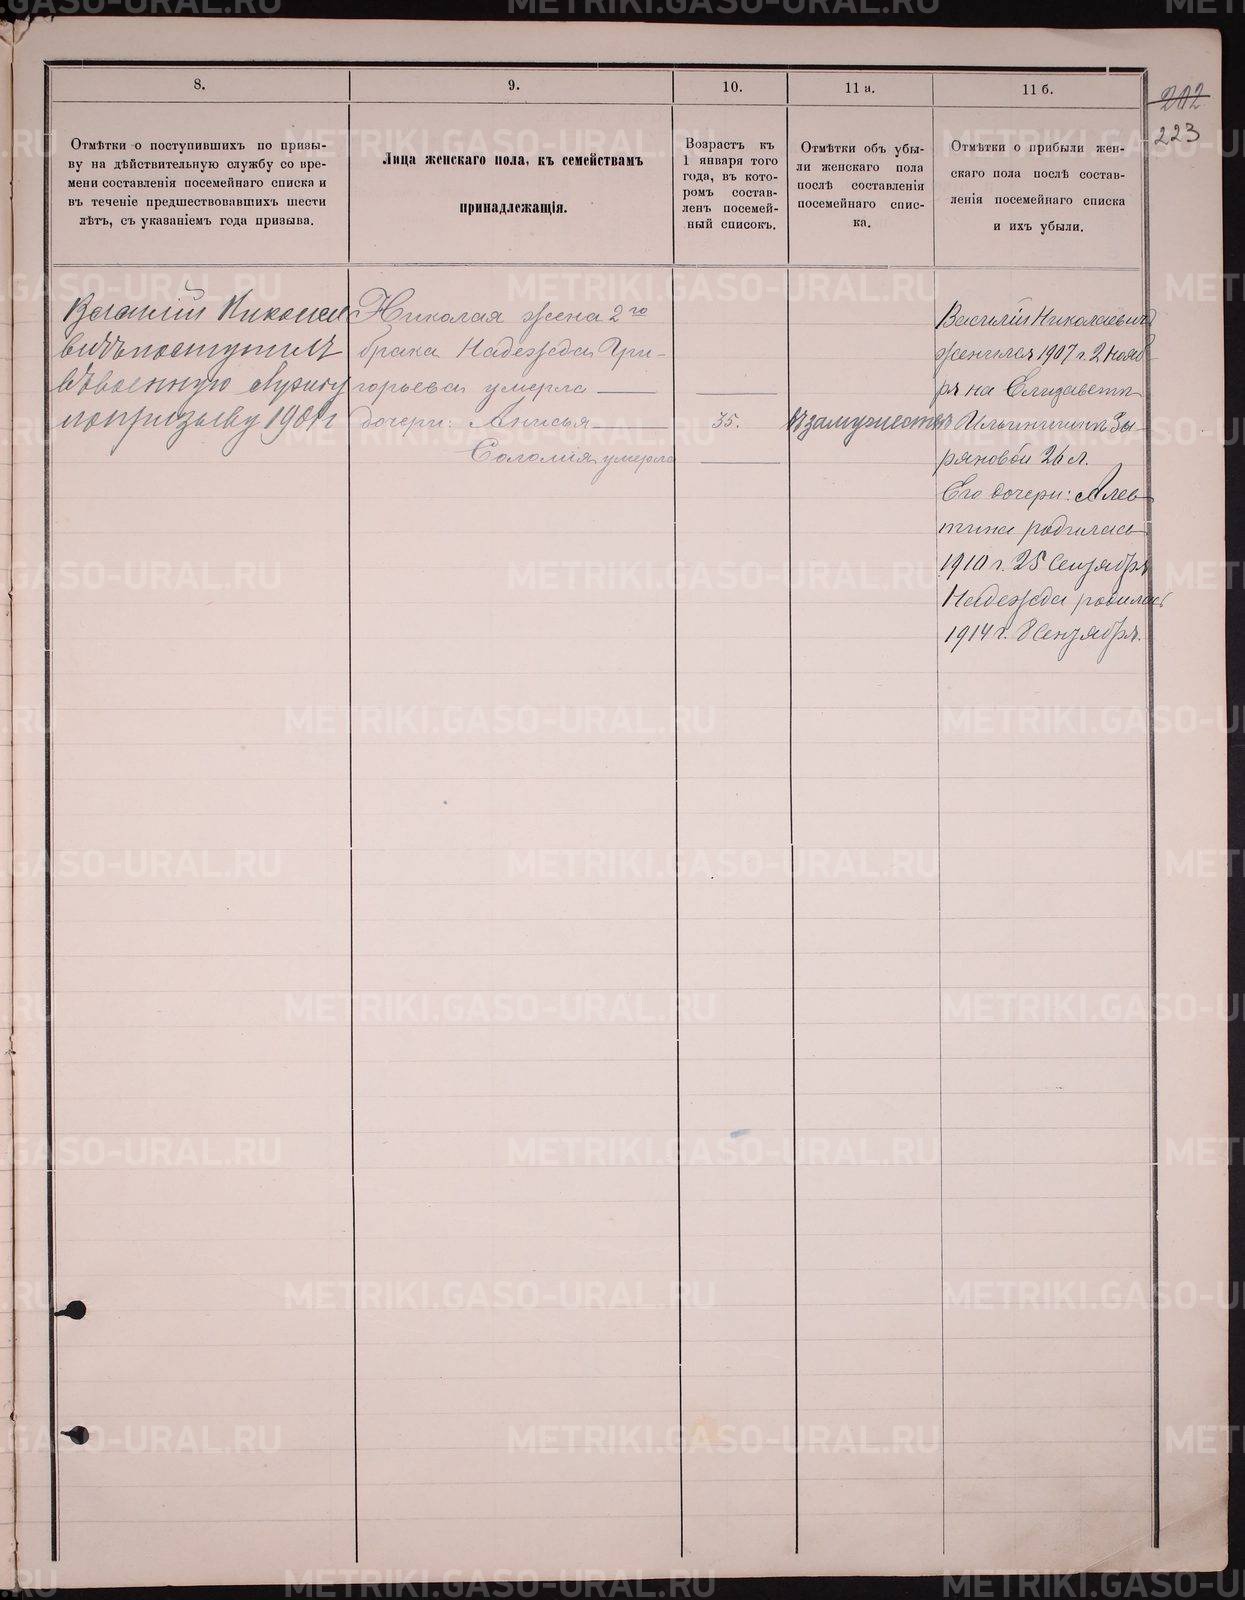 8.
9.
10.
11 а.
11 б.
202
223
Отмѣтки о поступившихъ по призы-
ву на дѣйствительную службу со вре-
мени составленія посемейнаго списка и
въ теченіе предшествовавшихъ шести
лѣтъ, съ указаніемъ года призыва.
Лица женскаго пола, къ семействамъ
принадлежащія.
Возрастъ къ
1 января того
года, въ кото-
ромъ состав-
ленъ посемей-
ный списокъ.
Отмѣтки объ убы-
ли женскаго пола
послѣ составленія
посемейнаго спис-
ка.
Отмѣтки о прибыли жен-
скаго пола послѣ состав-
ленія посемейнаго списка
и ихъ убыли.
Василій Николае
вичъ поступилъ
въ военную службу
по призыву 1901 г
Николая жена 2го
брака Надежда Гри-
горьева умерла
дочери: Анисья
Соломія умерла
35.
въ замужествѣ
Василій Николаевичъ
женился 1907 г. 2 Нояб
ря на Елизаветѣ
Ильиничнѣ Зы-
ряновой 26 л.
Его дочери: Алев
тина родилась
1910 г. 25 Сентября
Надежда родилась
1914 г. 8 Сентября.
METRIKI.GASO-URAL.RU